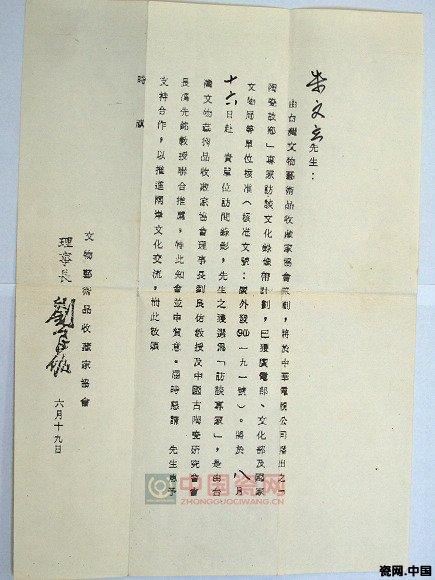 朱文立先生：
由台灣文物藝術品收藏家協會策劃，將於中華電視公司播出之「
陶瓷故鄉」專家訪談文化錄像帶計劃，已獲廣電部、文化部及國家
文物局等單位核准（核准文號：廣外發90一九一號）。將於八月
十六日赴　貴單位訪問錄影，先生之獲選為「訪談專家」，是由台
灣文物藝術品收藏家協會理事長劉良佑教授及中國古陶瓷研究會會
長馮先銘教授聯合推薦，特此知會並申賀意。屆時懇請　先生惠予
支持合作，以推進兩岸文化交流，耑此敬頌
時祺
文物藝術品收藏家協會
理事長 劉良佑
六月十九日
中国瓷网
ZHONGGUOCIWANG.CN
瓷网.中国